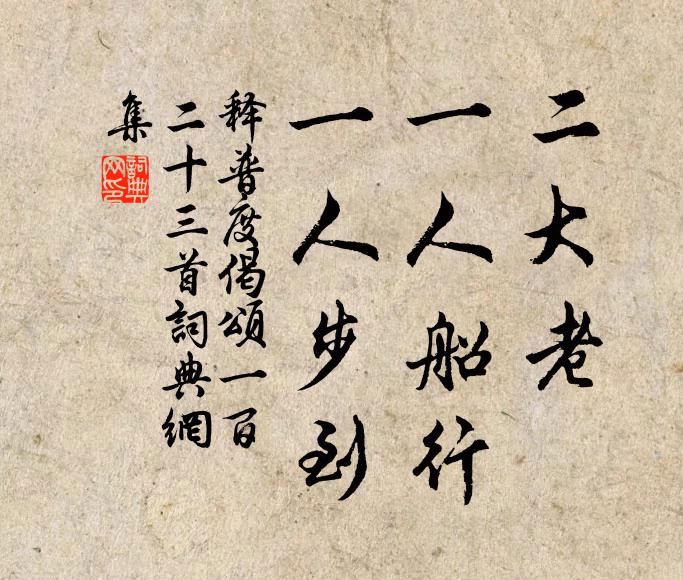 二大老
一人船行
一人步到
释普度偈颂一百
二十三首詞典網
集
詞典网印